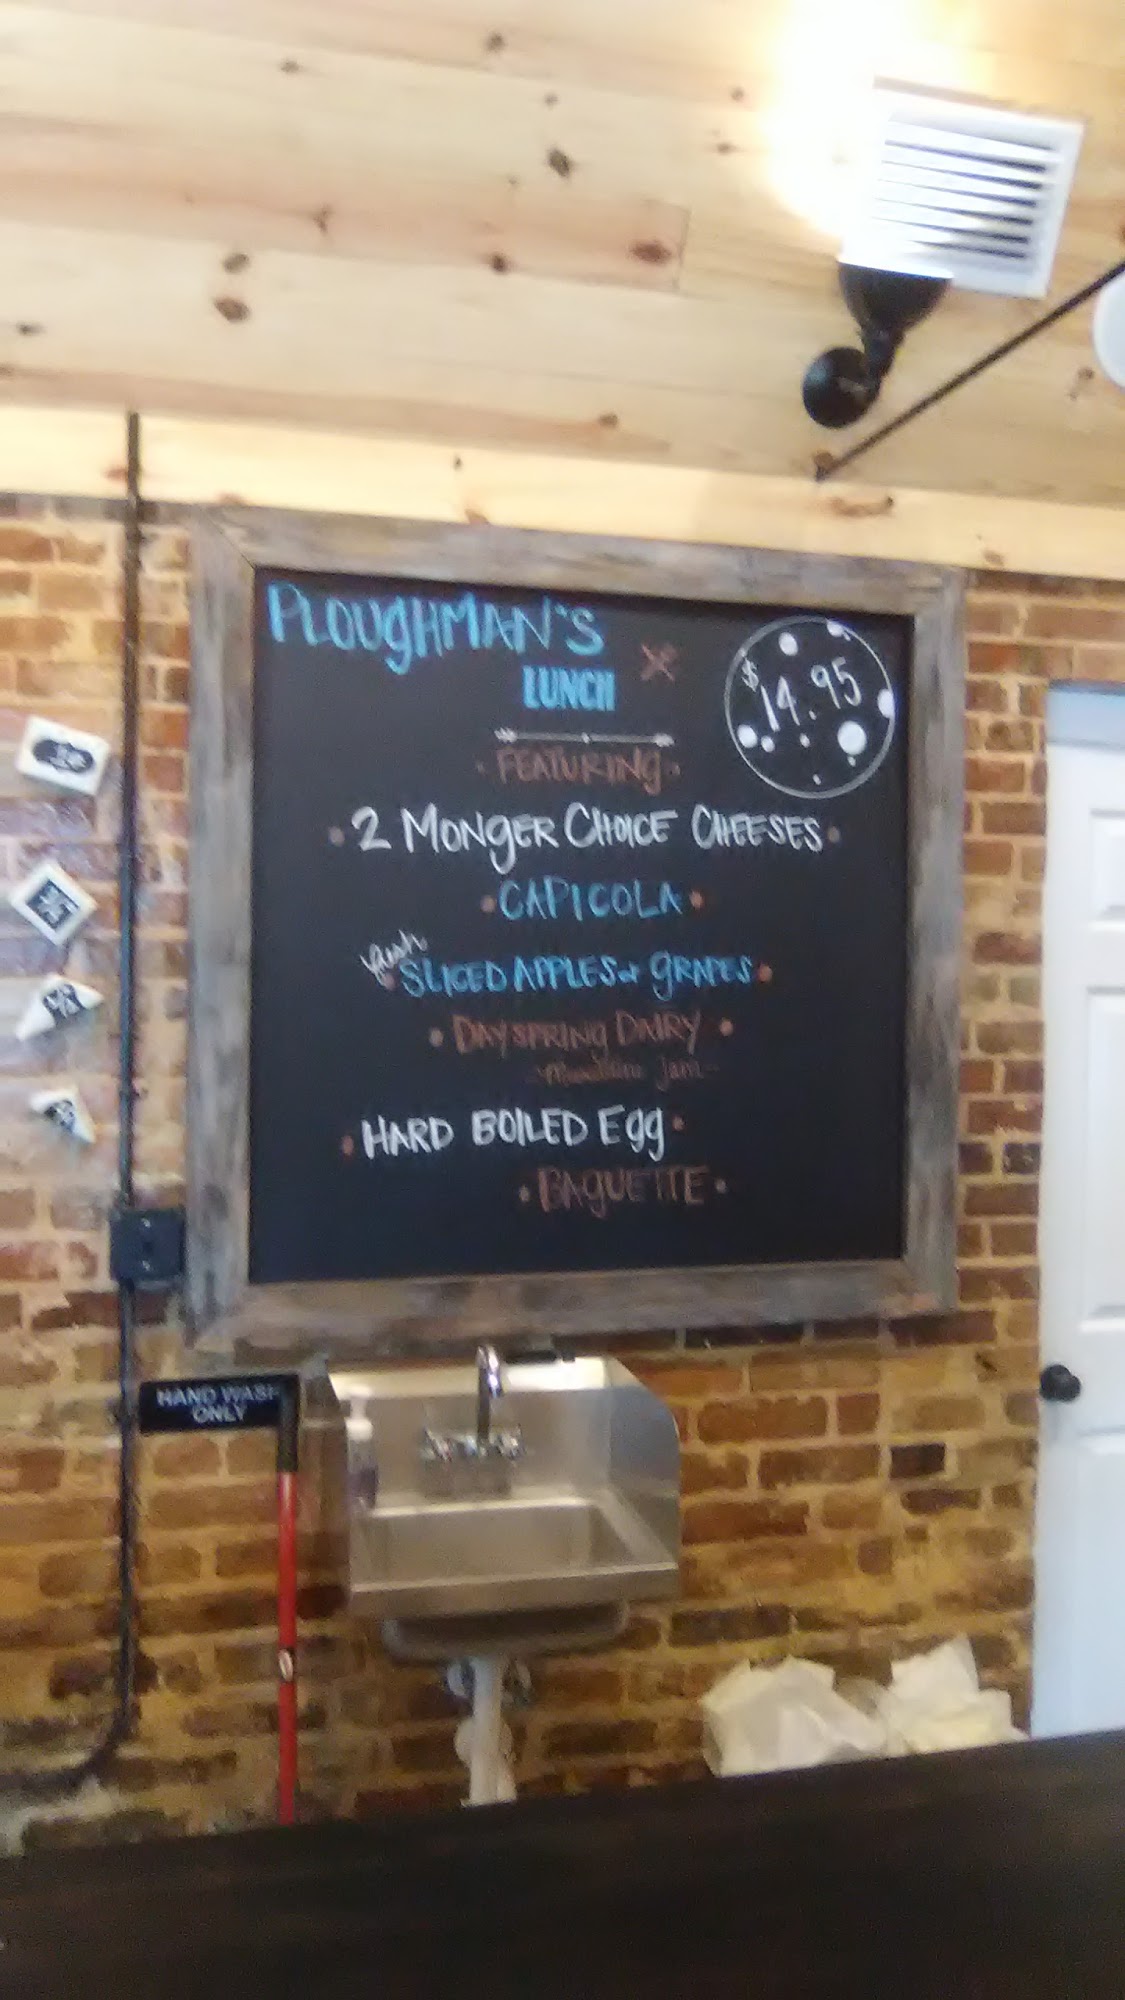 PLOUGHMAN'S
LUNCH
$14.95
FEATURING
• 2 MONGER CHOICE CHEESES •
• CAPICOLA •
fresh
• SLICED APPLES & GRAPES •
• DAYSPRING DAIRY •
Jam
• HARD BOILED EGG •
• BAGUETTE •
HAND WASH
ONLY